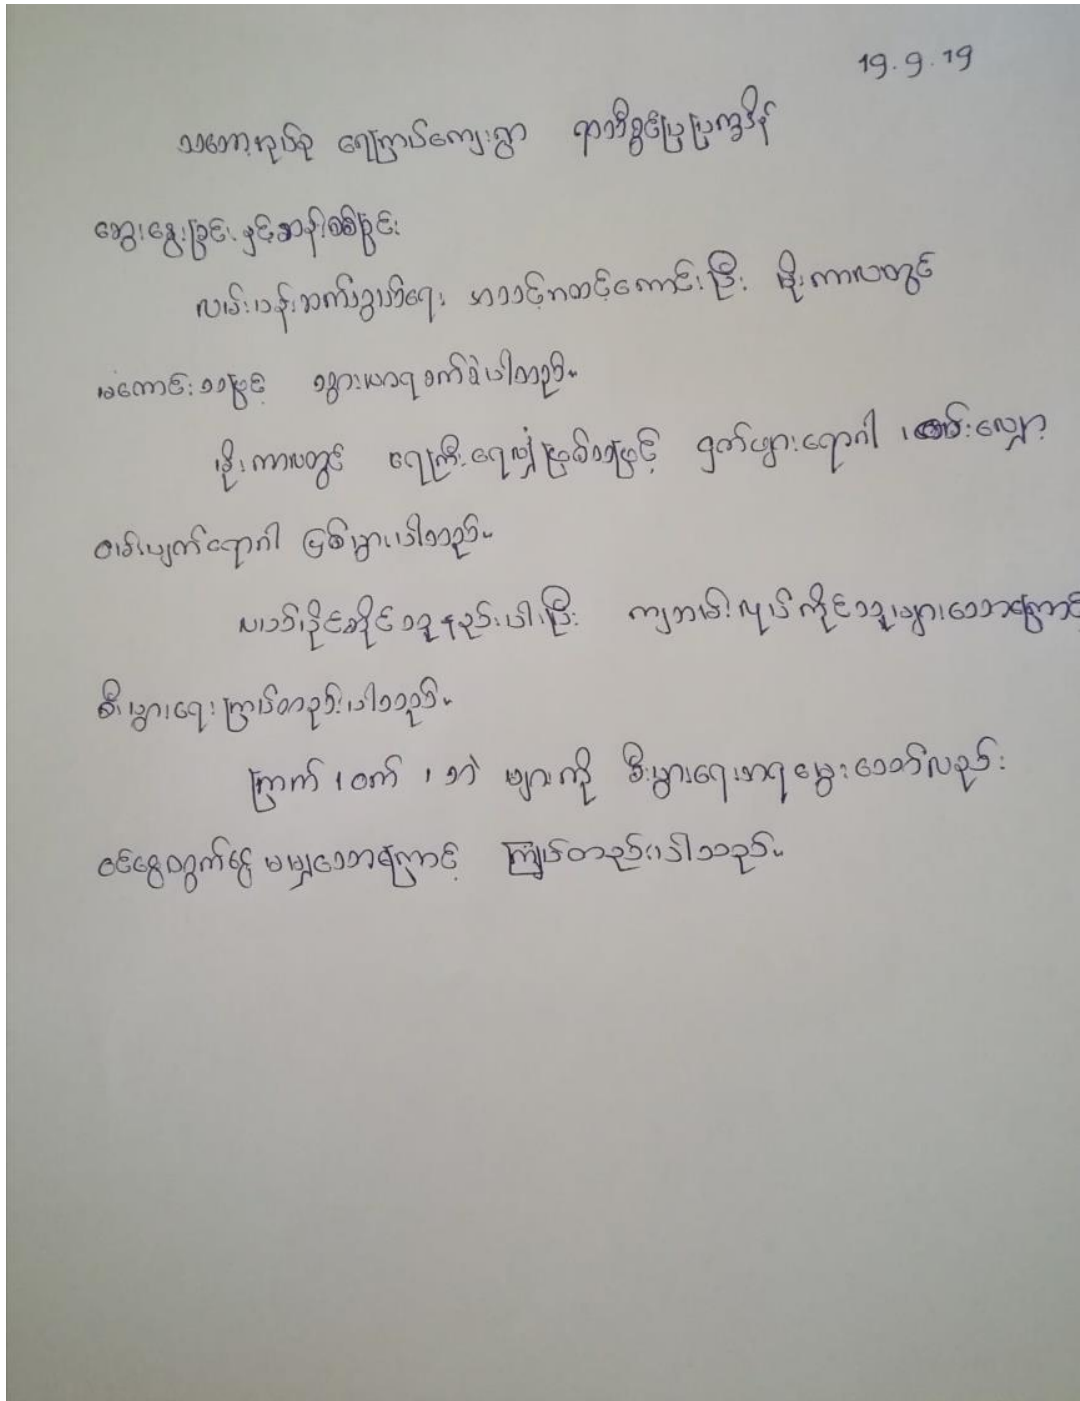 19.9.19
သဘော့အုပ်စု ရေကြာပ်ကျေးရွာ ရာသီခွင်ပြပြက္ခဒိန်
ဆွေးနွေးခြင်း နှင့်ဆန်းစစ်ခြင်း
လမ်းပန်းဆက်သွယ်ရေး အသင့်အတင့်ကောင်းပြီး မိုးကာလတွင်
မကောင်းသဖြင့် သွားလာရခက်ခဲပါသည်။
မိုးကာလတွင် ရေကြီးရေလျှံဖြစ်သဖြင့် ငှက်ဖျားရောဂါ ၊ ဝမ်းလျှော
ဝမ်းပျက်ရောဂါ ဖြစ်ပွားပါသည်။
လယ်ပိုင်ဆိုင်သူနည်းပါးပြီး ကျဘမ်းလုပ်ကိုင်သူများသောကြောင့်
စီးပွားရေးကြပ်တည်းပါသည်။
ကြက် ၊ ဝက် ၊ ဘဲ များကို စီးပွားရေးအရ မွေးသော်လည်း
ဝင်ငွေထွက်ငွေ မမျှသောကြောင့် ကြပ်တည်းပါသည်။